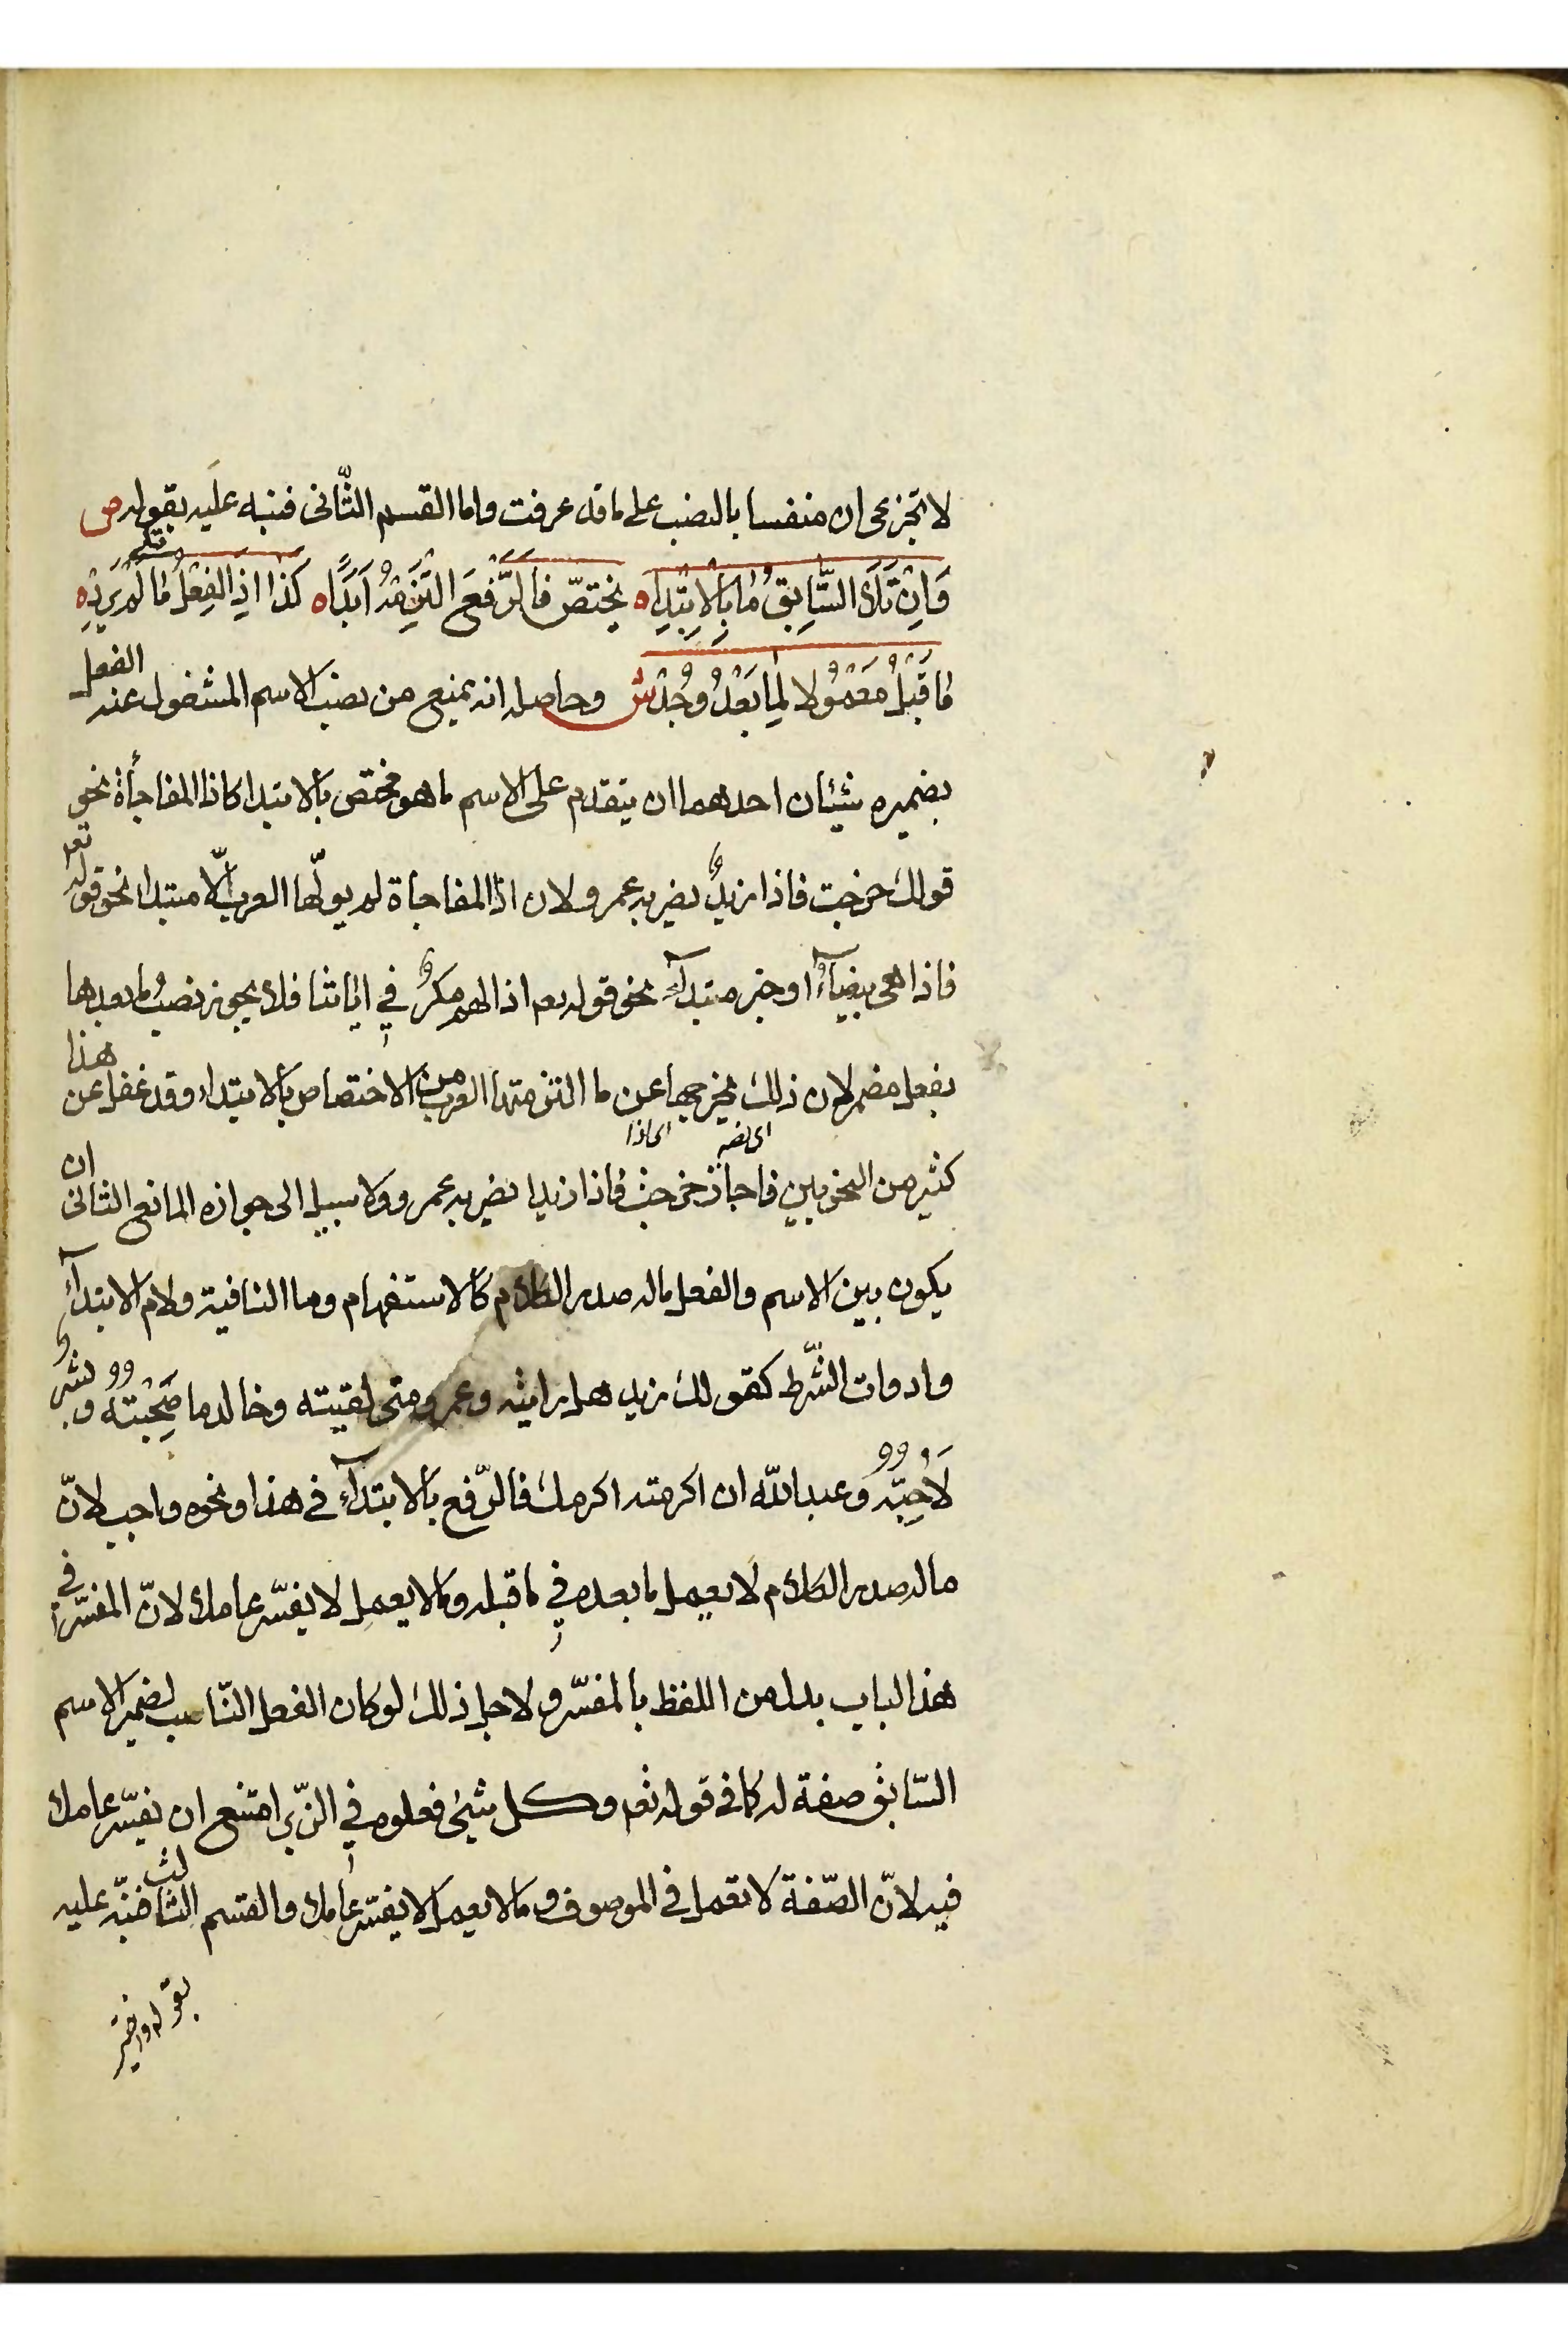 لا تجزعى ان منفسا بالنصب على ما قد عرفت واما القسم الثّانى فنبه عليه بقوله ص
وَاِنْ تَلَا السَّابِقُ مَا بِالْاِبْتِدَاه يختصّ فَالرَّفعَ الْتَزِمْهُ اَبَدًاه كَذَا اِذَا الفِعْلُ تَلَا مَا لَمْ يَرِدْه
مَا قَبْلُ مَعْمُولًا لِمَا بَعْدُ وُجِدْ ش وحاصله انه يمنع من نصب الاسم المشغول عنه الفعل
بضميره شيئان احدهما ان يتقدم على الاسم ما هو مختص بالابتدا كاذا المفاجأة نحو
قولك خرجت فاذا زيدٌ يضربه عمرو لان اذا المفاجاة لم يولّها العرب الّا مبتدا نحو قوله تعم
فاذا هى بيضآءُ او خبر مبتدآء نحو قوله تعم اذا لهم مكرٌ في اياتنا فلا يجوز نصبُ ما بعدها
بفعل مضمر لان ذلك يخرجها عن ما التزمتها العرب من الاختصاص بالابتداء وقد غفل عن هذا
اى نصبه اى اذا
كثير من النحويين فاجاز خرجت فاذا زيدا يضربه عمرو ولا سبيل الى جوازه المانع الثانى ان
يكون بين الاسم والفعل ما له صدر الكلام كالاستفهام وما النافية ولام الابتدآء
وادوات الشّرط كقولك زيد هل رايته وعمرو متى لقيته وخالد ما صَحِبْتُه وبشر
لَاُحِبّه وعبد اللّه ان اكرمته اكرمك فالرّفع بالابتدآء في هذا ونحوه واجب لانّ
ما له صدر الكلام لا يعمل ما بعده في ما قبله وما لا يعمل لا يفسّر عاملا لانّ المفسّر في
هذا الباب بدل من اللفظ بالمفسّر ولاجل ذلك لو كان الفعل النّاصب لضمير الاسم
السّابق صفة له كما فى قوله تعم وكل شيئ فعلوه في الزّبر امتنع ان يفسّر عاملا
فيه لانّ الصّفة لا تعمل فى الموصوف وما لا يعمل لا يفسّر عاملا والقسم الثالث فنبّه عليه
بقوله واختير